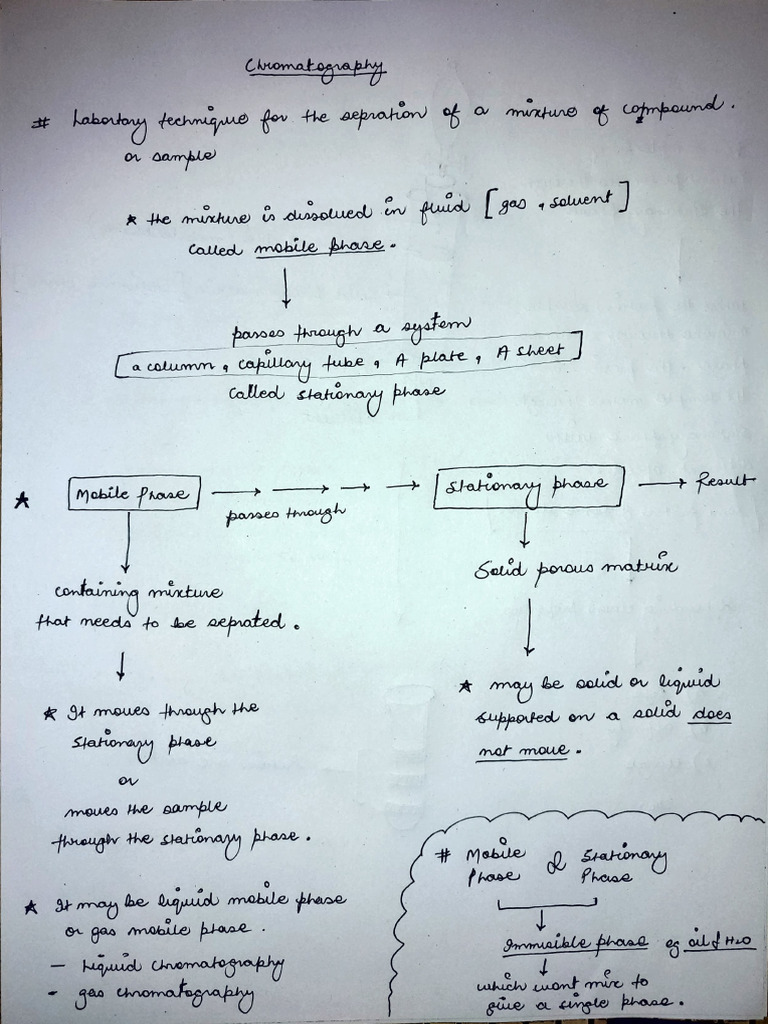 Chromatography
# Labortary technique for the sepration of a mixture of compound.
or sample
★ the mixture is dissolued in fluid [gas, solvent]
called mobile phase.
passes through a system
a column, capillary tube, A plate, A sheet
called stationary phase
★ Mobile Phase → → → → Stationary phase → Result
passes through
Solid porous matrix
containing mixture
that needs to be seprated.
★ may be solid or liquid
supported on a solid does
not move.
★ It moves through the
stationary phase
or
moves the sample
through the stationary phase.
# Mobile Phase & Stationary Phase
Immisible phase eg oil & H2O
which wont mix to
give a single phase.
★ It may be liquid mobile phase
or gas mobile phase.
- Liquid chromatography
- gas chromatography